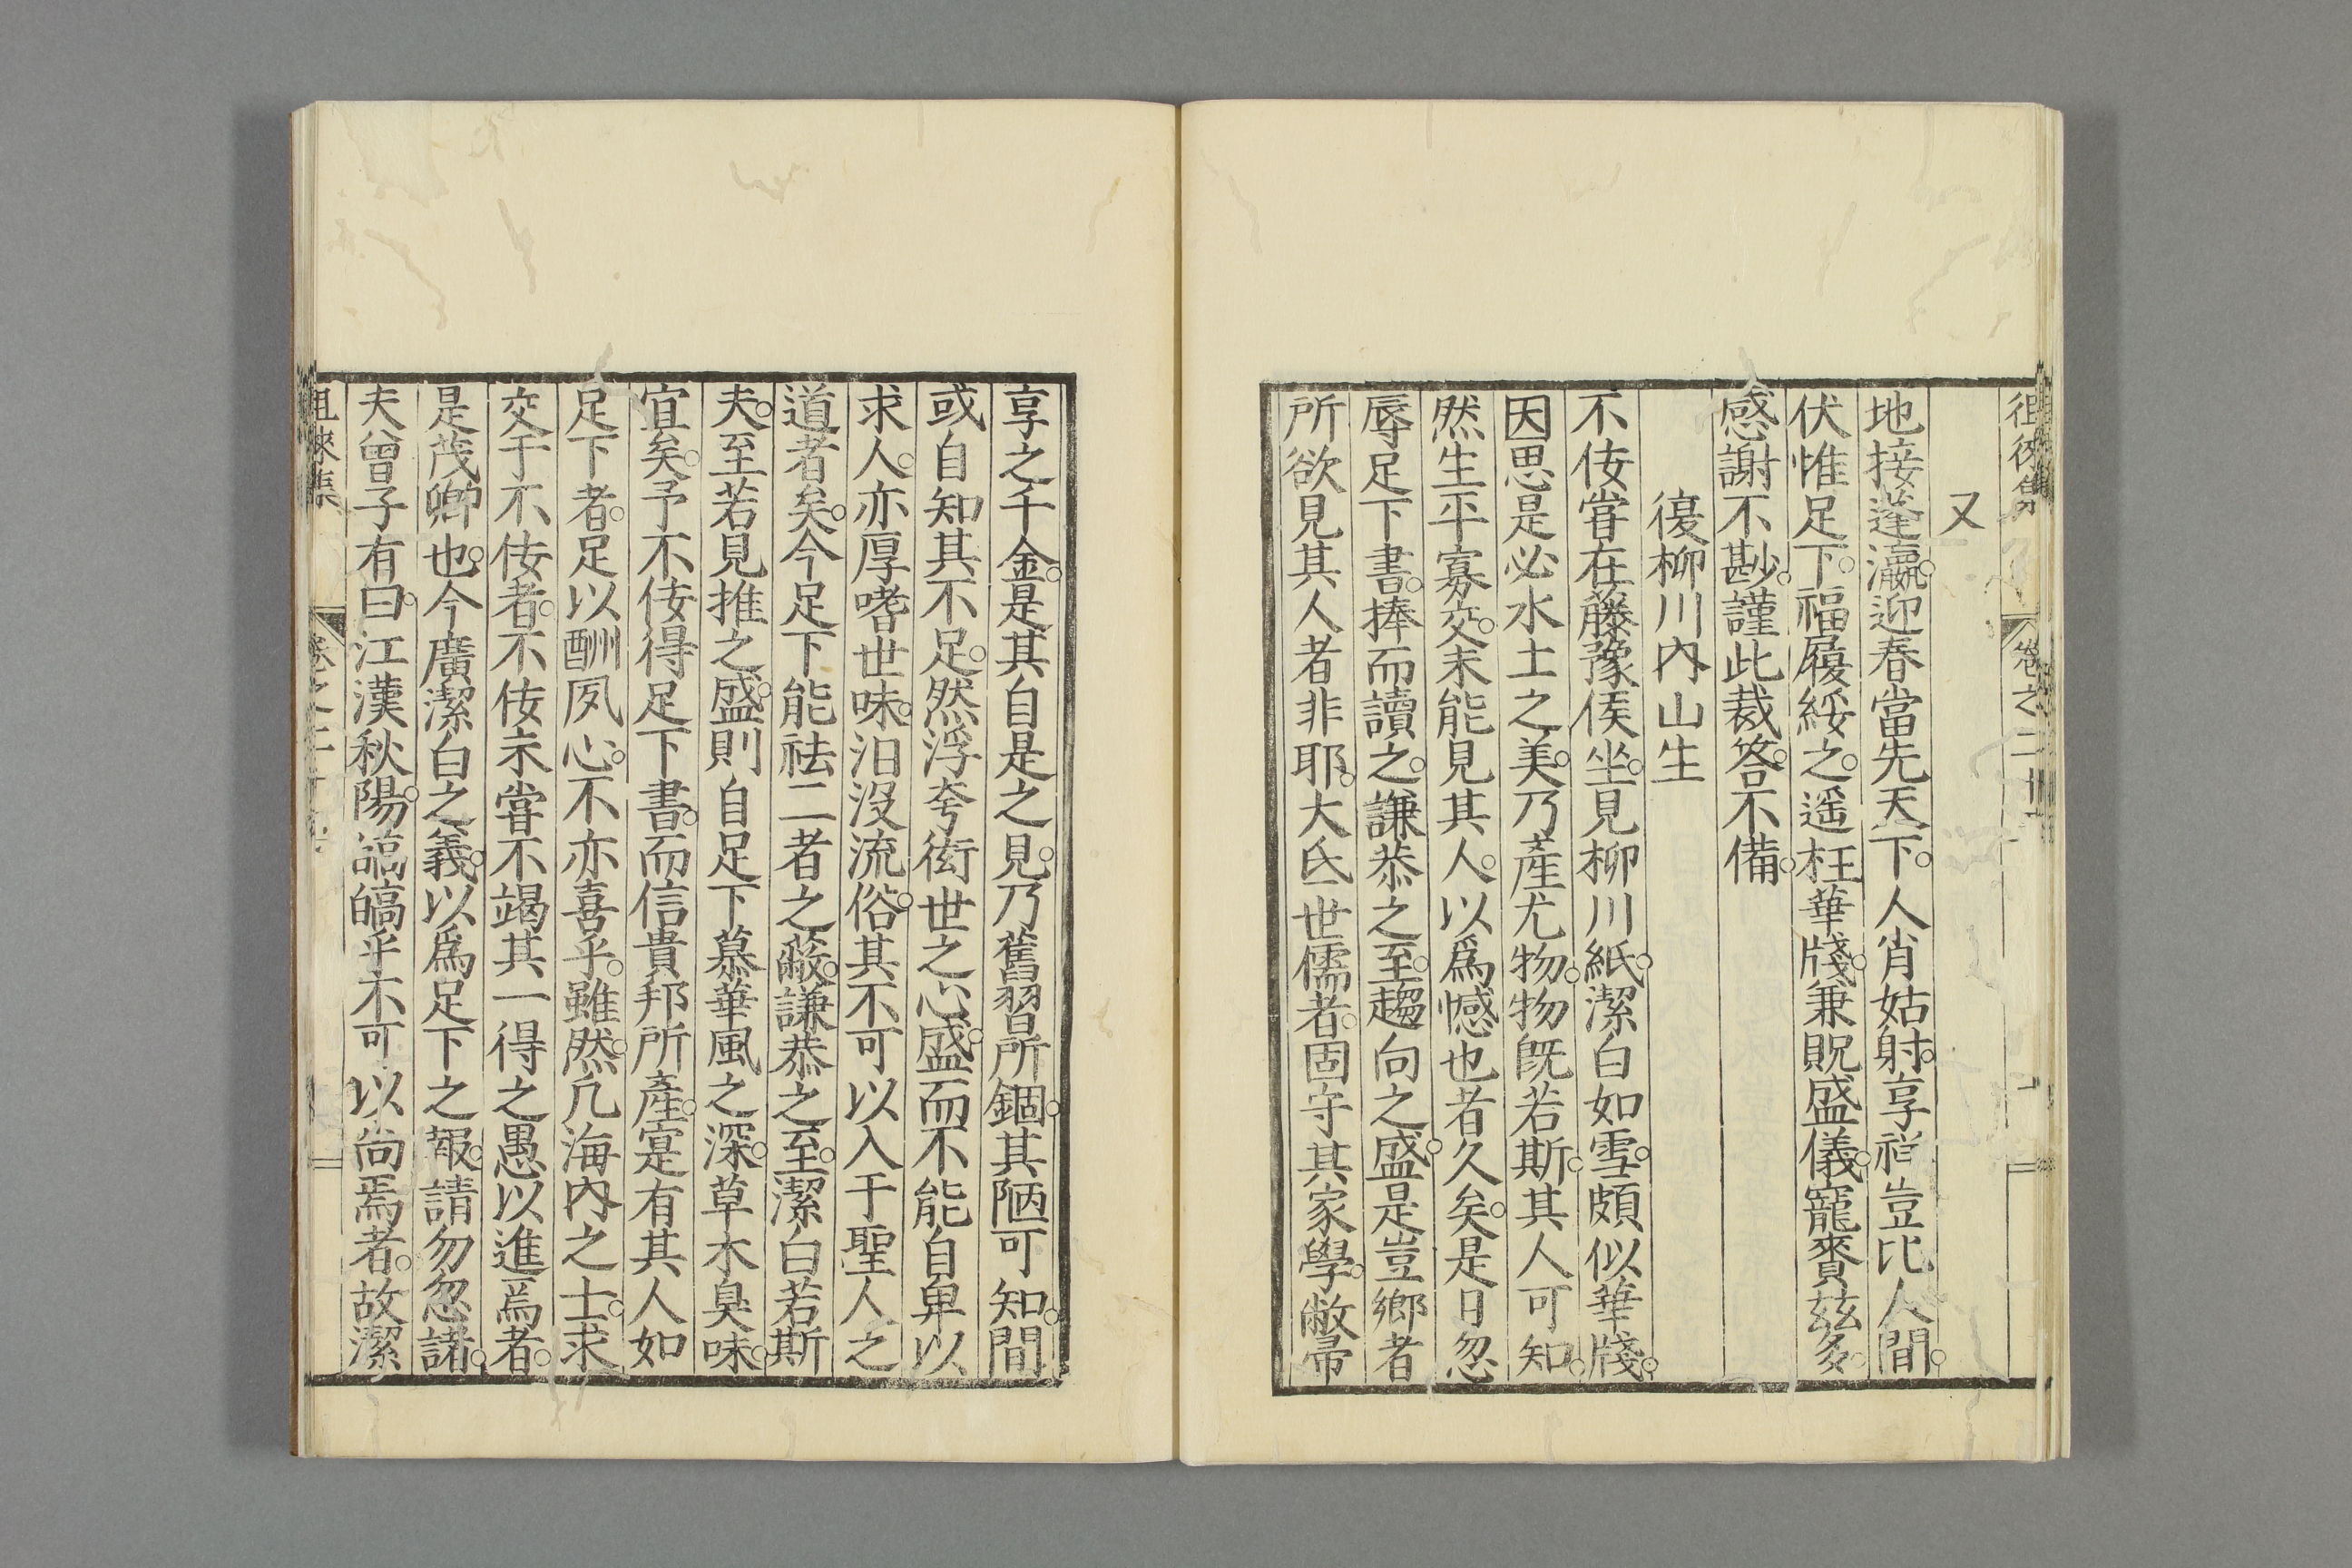 徂徠集 卷之二十
又
地接蓬瀛。迎春當先天下。人肖姑射。享祥豈比人間。
伏惟足下。福履綏之。遥枉華牋。兼貺盛儀。寵賚玆多。
感謝不尠。謹此裁答。不備。
復柳川內山生
不佞甞在藤豫侯坐。見柳川紙。潔白如雪。頗似華牋。
因思是必水土之美。乃產尤物。物旣若斯。其人可知。
然生平寡交。未能見其人。以爲憾也者久矣。是日忽
辱足下書。捧而讀之。謙恭之至。趨向之盛。是豈鄉者
所欲見其人者非耶。大氐世儒者。固守其家學。敝帚
享之千金。是其自是之見。乃舊習所錮。其陋可知。間
或自知其不足。然浮夸衒世之心。盛而不能自卑以
求人。亦厚嗜世味。汩沒流俗。其不可以入于聖人之
道者矣。今足下能祛二者之蔽。謙恭之至。潔白若斯
夫。至若見推之盛。則自足下慕華風之深。草木臭味。
宜矣。予不佞得足下書。而信貴邦所產。寔有其人如
足下者。足以酬夙心。不亦喜乎。雖然。凢海內之士。求
交于不佞者。不佞未甞不竭其一得之愚以進焉者。
是茂卿也。今廣潔白之義。以爲足下之報。請勿忽諸。
夫曾子有曰。江漢秋陽。皜皜乎不可以尚焉者。故潔
徂徠集 卷之二十